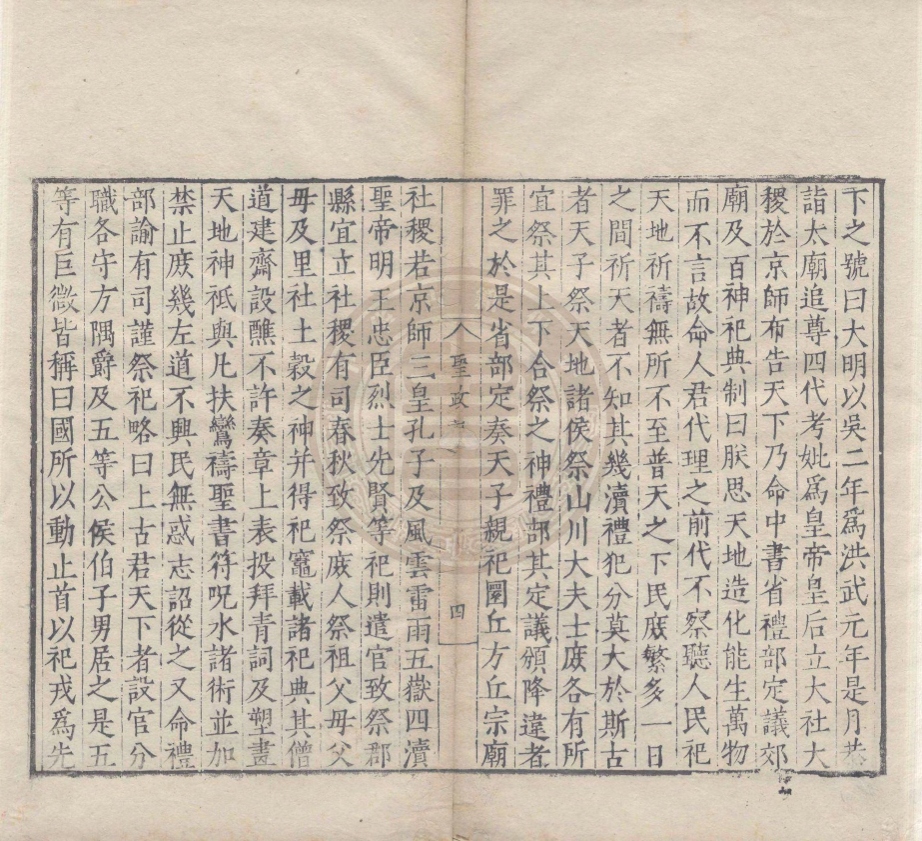 下之號曰大明以吳二年爲洪武元年是月恭
詣太廟追尊四代考妣爲皇帝皇后立大社大
稷於京師布告天下乃命中書省禮部定議郊
廟及百神祀典制曰朕思天地造化能生萬物
而不言故命人君代理之前代不察聽人民祀
天地祈禱無所不至普天之下民庻繁多一日
之間祈天者不知其幾瀆禮犯分莫大於斯古
者天子祭天地諸侯祭山川大夫士庻各有所
宜祭其上下合祭之神禮部其定議頒降違者
罪之於是省部定奏天子親祀圜丘方丘宗廟
聖政
四
社稷若京師三皇孔子及風雲雷雨五嶽四瀆
聖帝明王忠臣烈士先賢等祀則遣官致祭郡
縣宜立社稷有司春秋致祭庻人祭祖父母父
母及里社土榖之神并得祀竈載諸祀典其僧
道建齋設醮不許奏章上表投拜青詞及塑畫
天地神祗與凡扶鸞禱聖書符呪水諸術並加
禁止庻幾左道不興民無惑志詔從之又命禮
部諭有司謹祭祀略曰上古君天下者設官分
職各守方隅爵及五等公侯伯子男居之是五
等有巨微皆稱曰國所以動止首以祀戎爲先